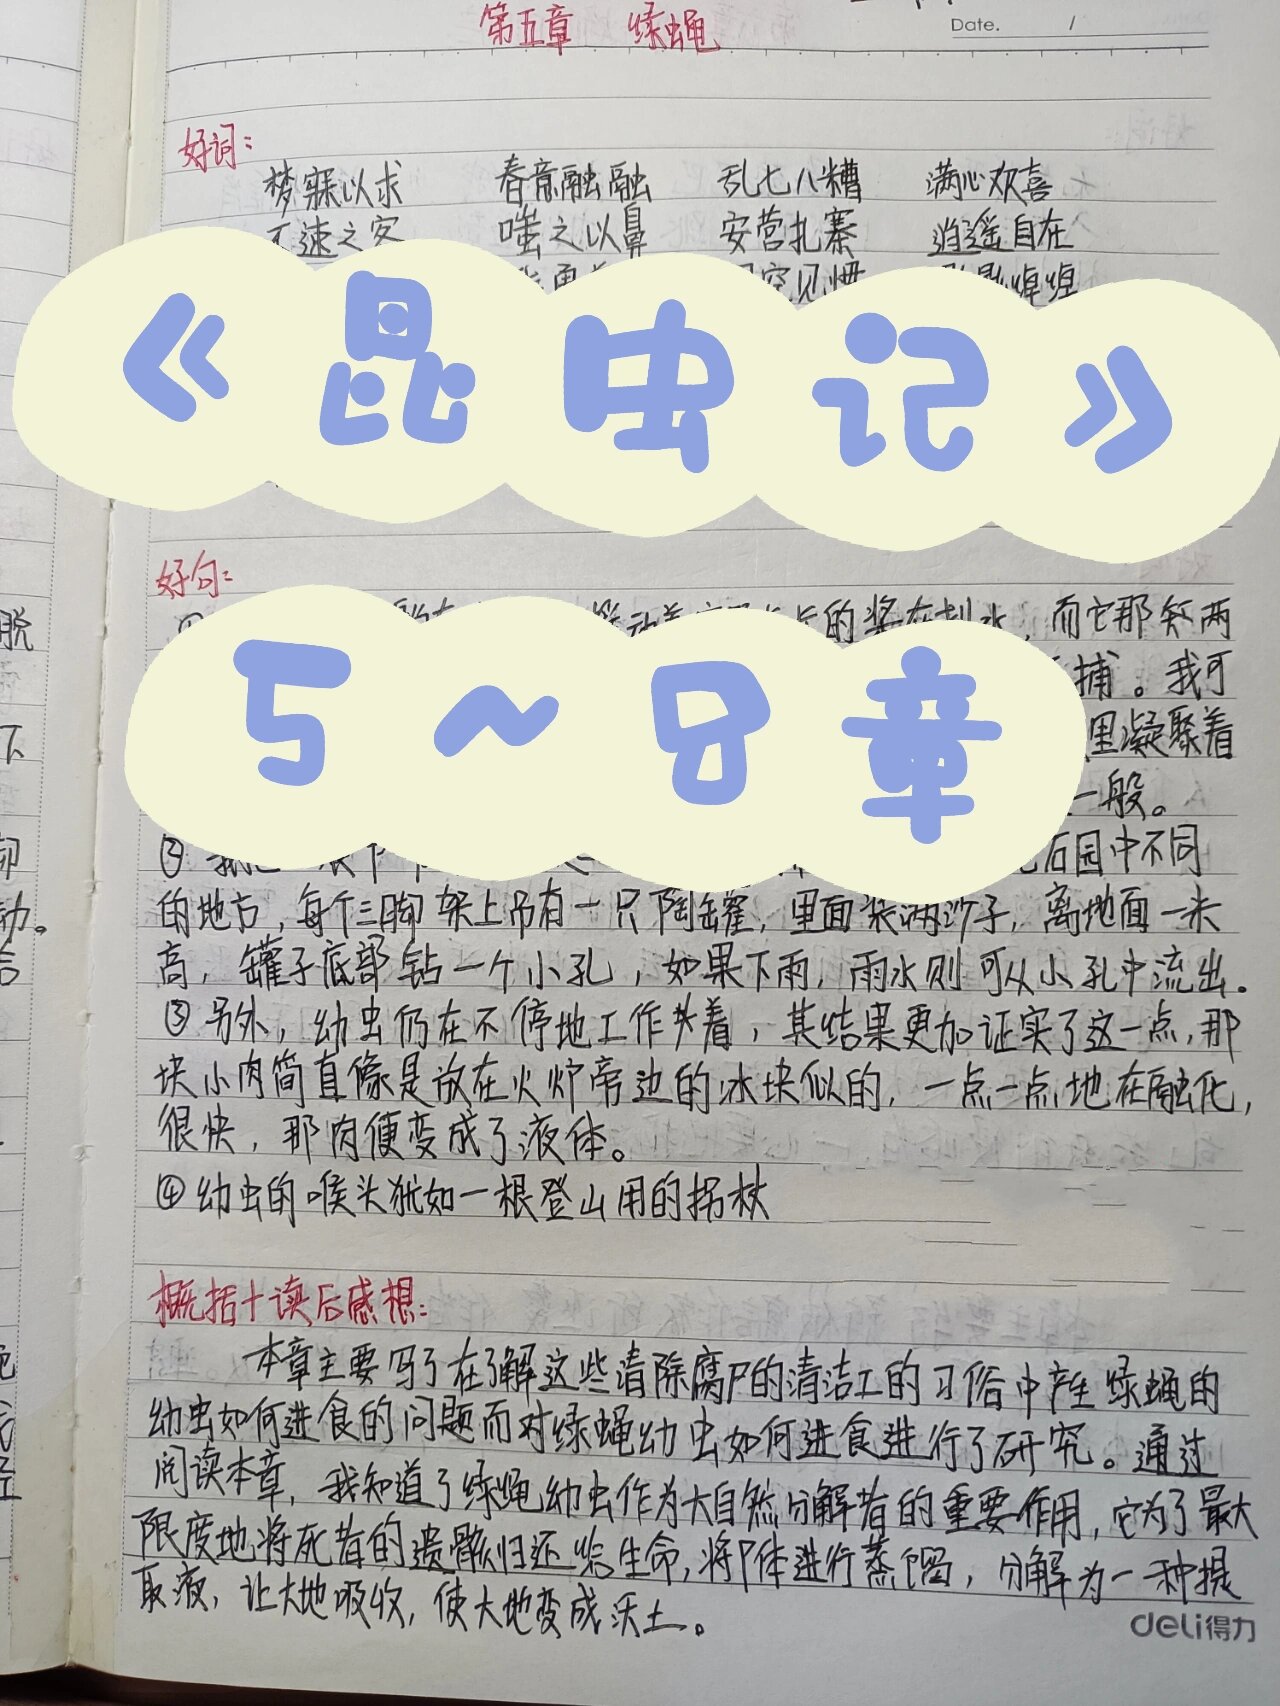 第五章 绿蝇
Date. /
好词：
梦寐以求 春意融融 乱七八糟 满心欢喜
不速之客 嗤之以鼻 安营扎寨 逍遥自在
《昆虫记》
好句：
的桨在划水，而它那矩两
捕。我可
5～8章
里凝聚着
一般。
②
后园中不同
的地方，每个三脚架上吊有一只陶罐，里面装满沙子，离地面一米
高，罐子底部钻一个小孔，如果下雨，雨水则可从小孔中流出。
③另外，幼虫仍在不停地工作着，其结果更加证实了这一点，那
块小肉简直像是放在火炉旁边的冰块似的，一点一点地在融化，
很快，那肉便变成了液体。
④幼虫的喉头犹如一根登山用的拐杖
概括+读后感想：
本章主要写了在了解这些清除腐尸的清洁工的习俗中产生绿蝇的
幼虫如何进食的问题而对绿蝇幼虫如何进食进行了研究。通过
阅读本章，我知道了绿绳幼虫作为大自然分解者的重要作用，它为了最大
限度地将死者的遗骸归还给生命，将尸体进行蒸馏，分解为一种提
取液，让大地吸收，使大地变成沃土。
deli得力